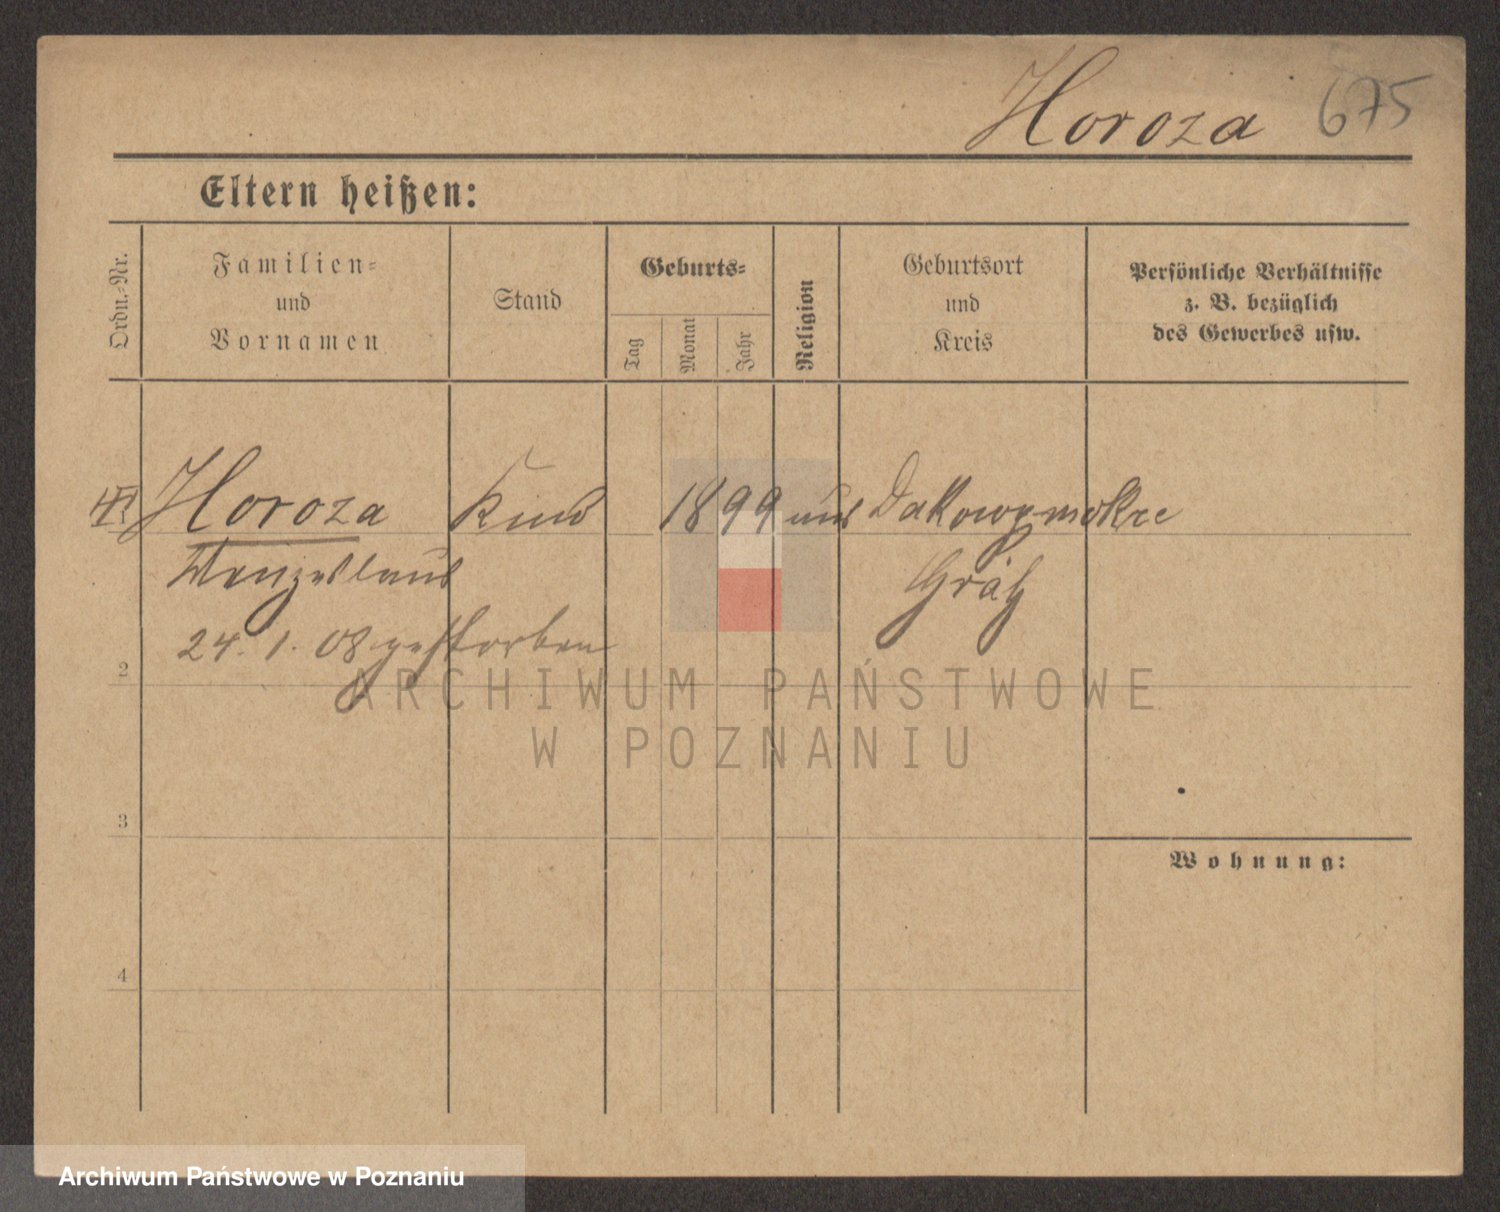 Horoza 675
Eltern heißen:
Ordn.-Nr.
Familien-
und
Vornamen
Stand
Geburts-
Tag
Monat
Jahr
Religion
Geburtsort
und
Kreis
Persönliche Verhältnisse
z. B. bezüglich
des Gewerbes usw.
Horoza Kind 1899 Dakowymokre
Wenzeslaus Grätz
24. 1. 08 gestorben
2
3
4
Wohnung:
ARCHIWUM PAŃSTWOWE
W POZNANIU
Archiwum Państwowe w Poznaniu